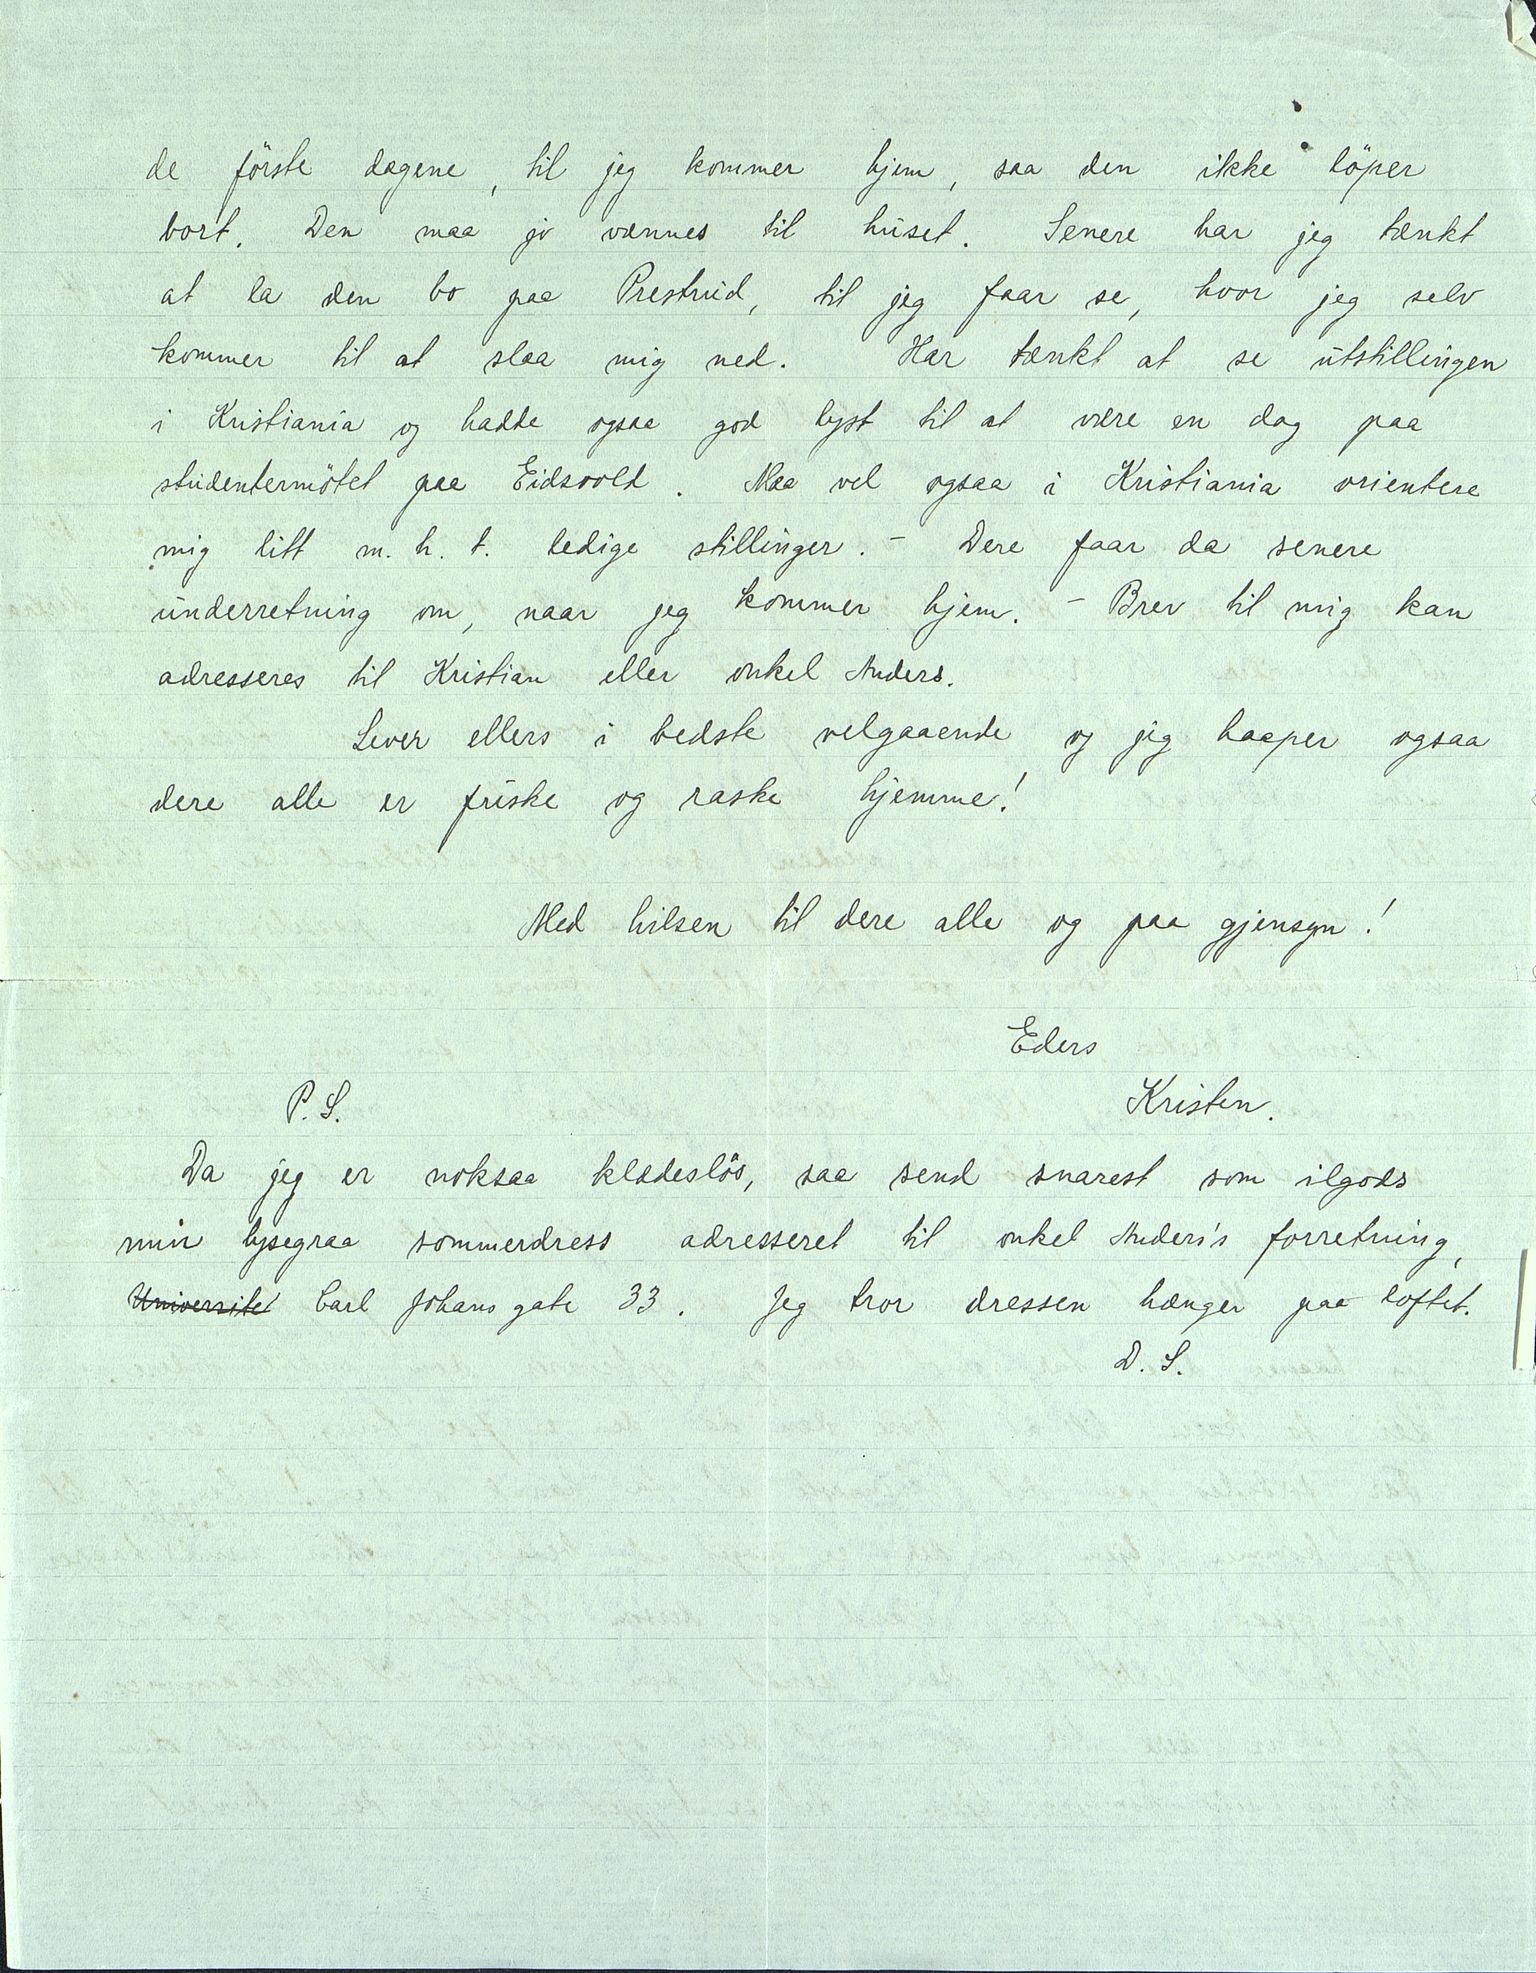 de förste dagene, til jeg kommer hjem, saa den ikke löper
bort. Den maa jo vænnes til huset. Senere har jeg tænkt
at la den bo paa Prestrud, til jeg faar se, hvor jeg selv
kommer til at slaa mig ned. Har tænkt at se utstillingen
i Kristiania og hadde ogsaa god lyst til at være en dag paa
studentermötet paa Eidsvold. Maa vel ogsaa i Kristiania orientere
mig litt m. h. t. ledige stillinger. - Dere faar da senere
underretning om, naar jeg kommer hjem. - Brev til mig kan
adresseres til Kristian eller onkel Anders.
Lever ellers i bedste velgaaende og jeg haaper ogsaa
dere alle er friske og raske hjemme!
Med hilsen til dere alle og paa gjensyn!
Eders
Kristen.
P.S.
Da jeg er noksaa klædeslös, saa send snarest som ilgods
min lysegraa sommerdress adresseret til onkel Anders's forretning,
Universitet Carl Johans gate 33. Jeg tror dressen hænger paa loftet.
D. S.